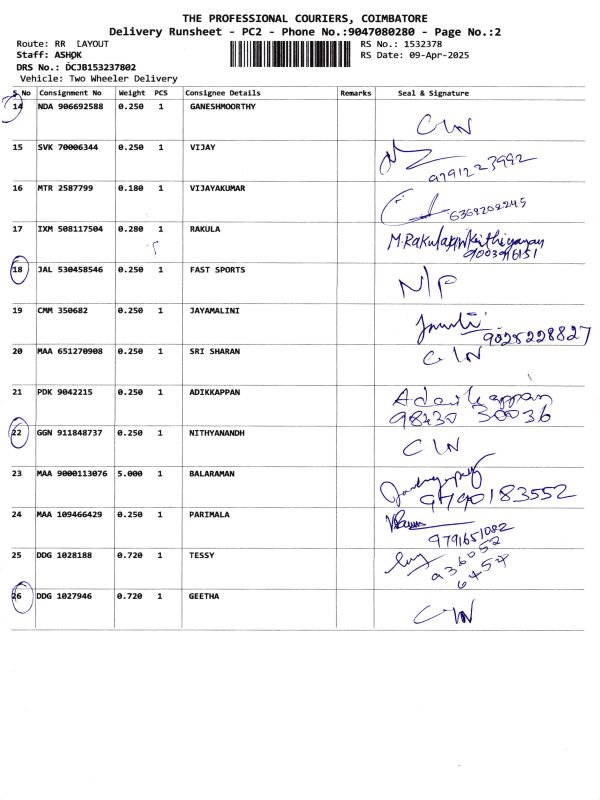 THE PROFESSIONAL COURIERS, COIMBATORE
Delivery Runsheet - PC2 - Phone No.:9047080280 - Page No.:2
Route: RR LAYOUT RS No.: 1532378
Staff: ASHOK RS Date: 09-Apr-2025
DRS No.: DCJB153237802
Vehicle: Two Wheeler Delivery
S No Consignment No Weight PCS Consignee Details Remarks Seal & Signature
14 NDA 906692588 0.250 1 GANESHMOORTHY
C IN
15 SVK 70006344 0.250 1 VIJAY
9791223992
16 MTR 2587799 0.180 1 VIJAYAKUMAR
6369202245
17 IXM 508117504 0.280 1 RAKULA M.Rakula
9003916151
18 JAL 530458546 0.250 1 FAST SPORTS
N/P
19 CMM 350682 0.250 1 JAYAMALINI
9025228827
20 MAA 651270908 0.250 1 SRI SHARAN C IN
21 PDK 9042215 0.250 1 ADIKKAPPAN Adaikappan
98430 30036
22 GGN 911848737 0.250 1 NITHYANANDH
C IN
23 MAA 9000113076 5.000 1 BALARAMAN
9790183552
24 MAA 109466429 0.250 1 PARIMALA
9791651082
25 DDG 1028188 0.720 1 TESSY
936052
6454
26 DDG 1027946 0.720 1 GEETHA
C IN